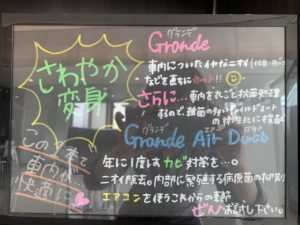 さわやか
変身
この車で
車内が
快適に
グランデ
Grande
車内についたイヤなニオイ
などを直ちにカット!!
さらに…車内まるごと抗菌処理
するので、雑菌の
グランデ エア ダクト
Grande Air Duct
年に1度はカビ対策を…。
ニオイ除去。内部に繁殖する病原菌の抑制
エアコンを使うこれからの季節
ぜひお試し下さい。